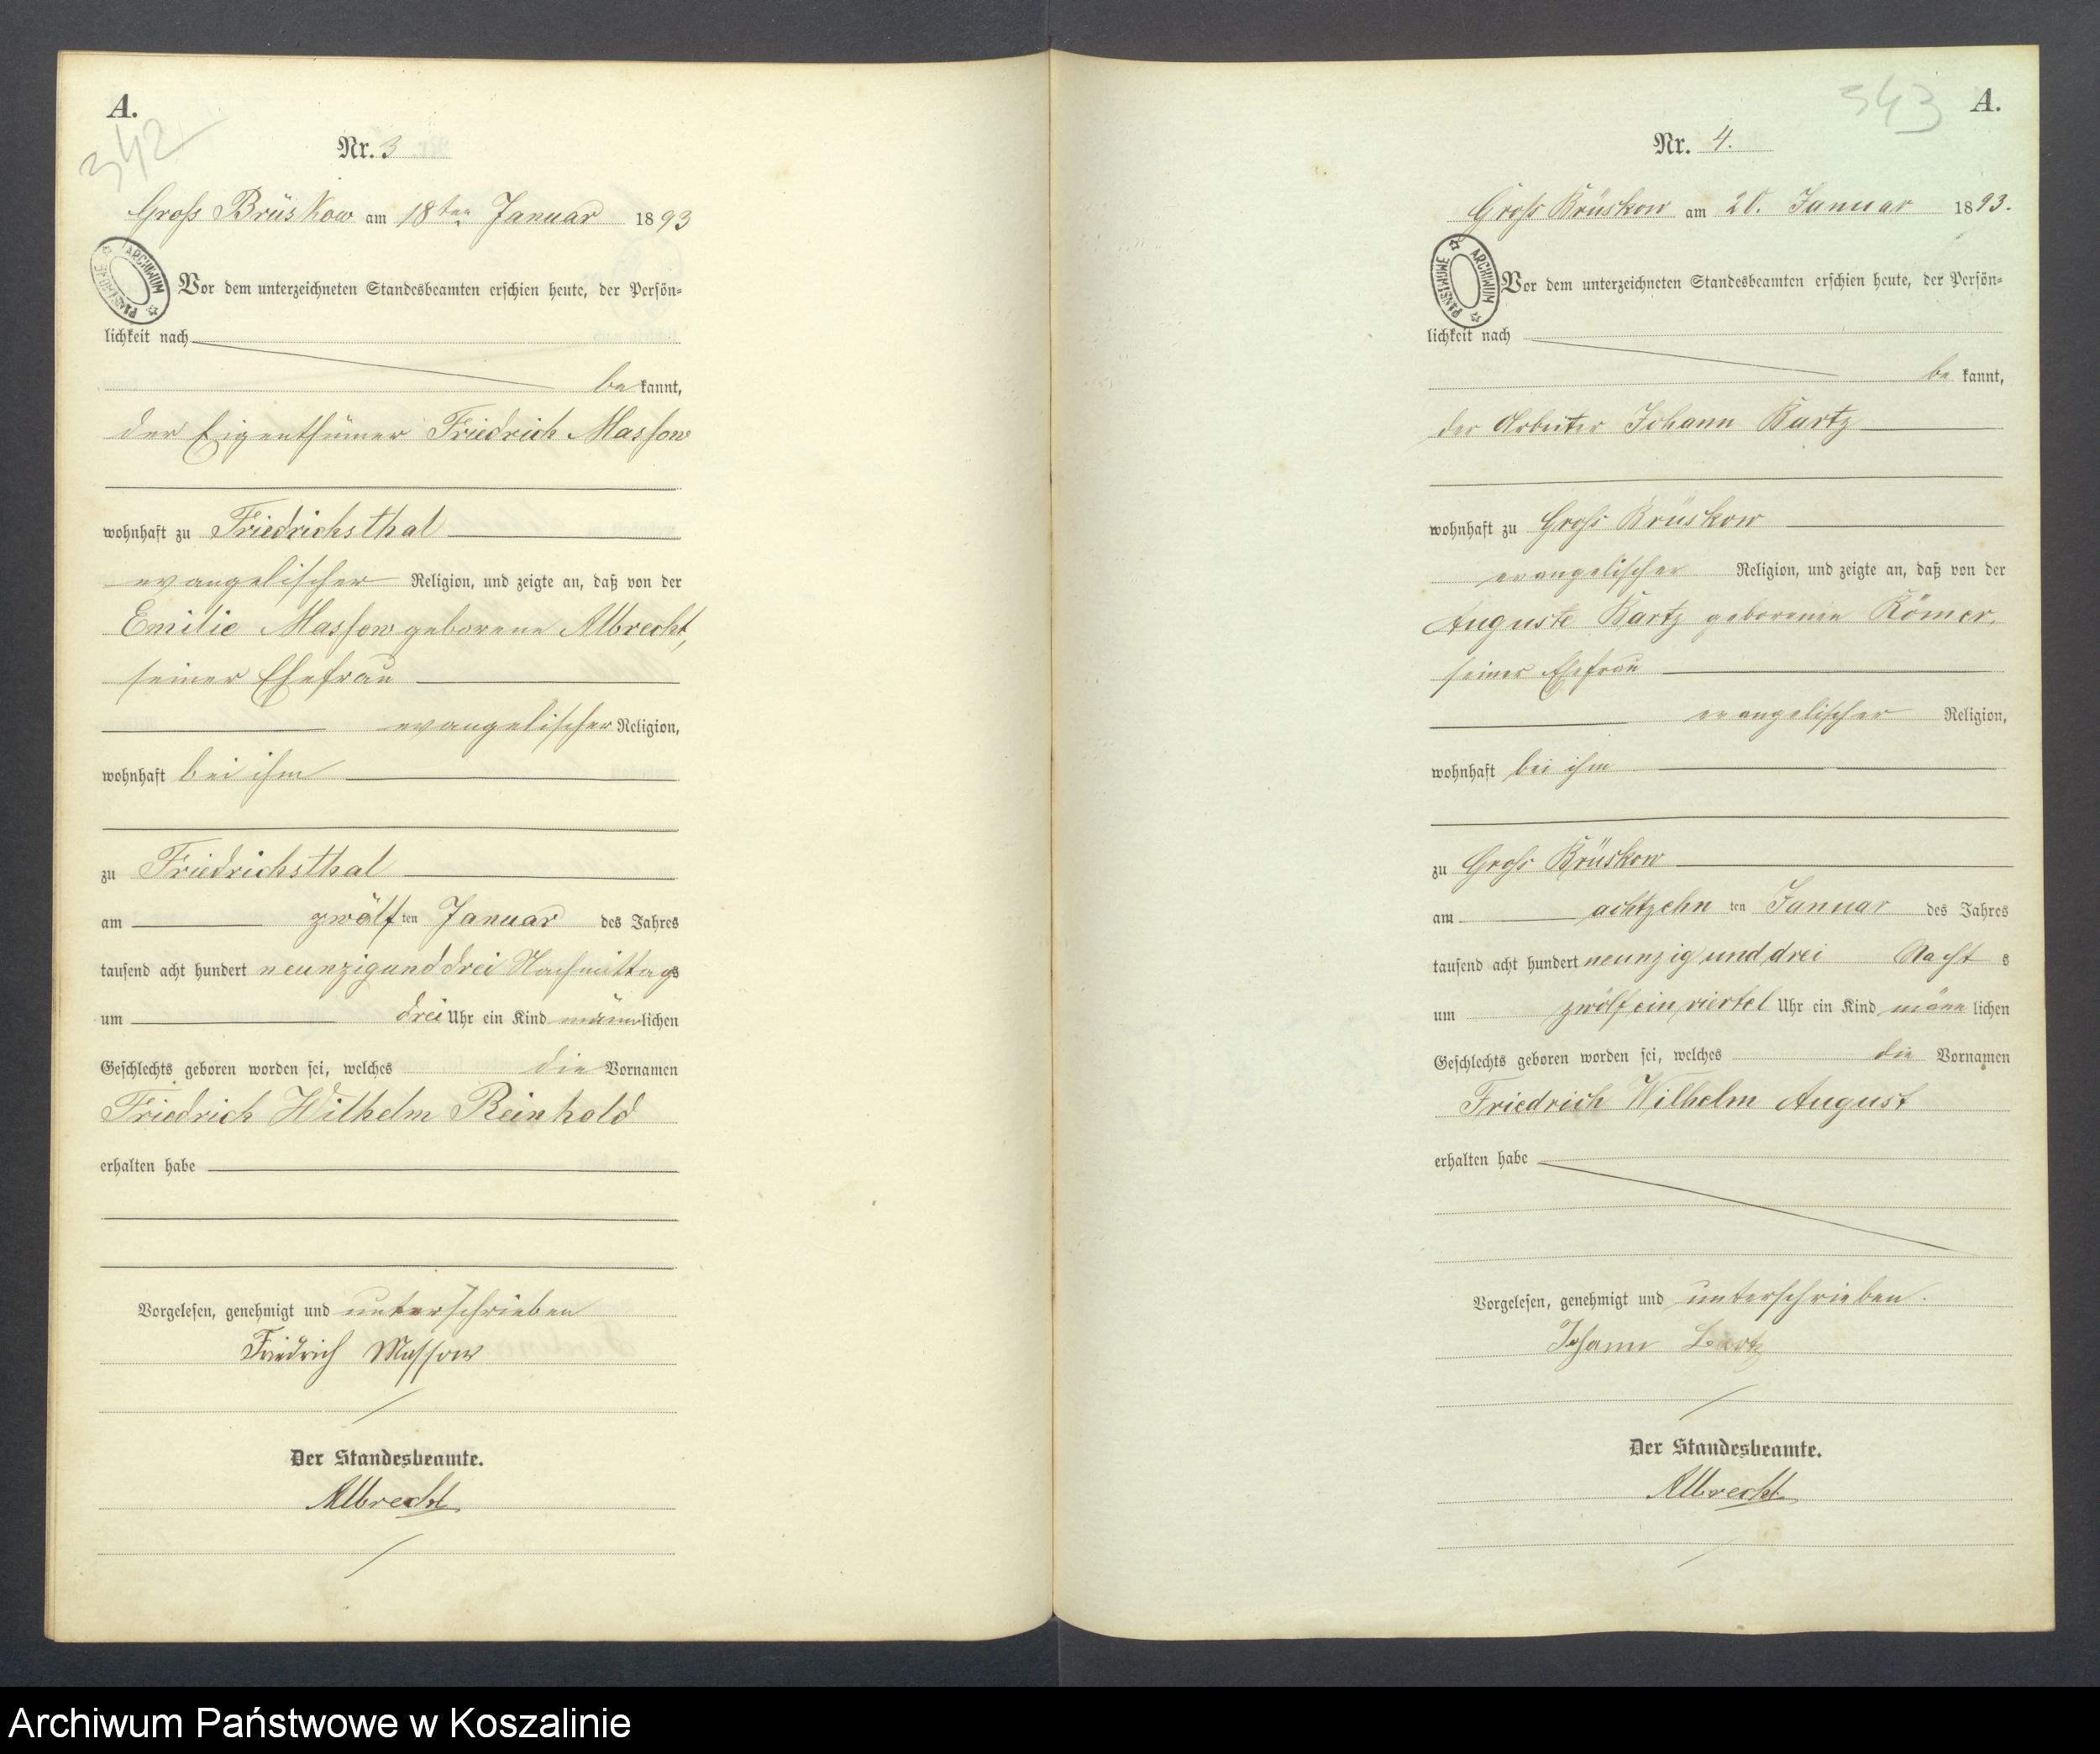 A.
342
Nr. 3
Gross Brüskow am 18ten Januar 1893
ARCHIWUM PAŃSTWOWE
Vor dem unterzeichneten Standesbeamten erschien heute, der Persön=
lichkeit nach
be kannt,
der Eigenthümer Friedrich Massow
wohnhaft zu Friedrichsthal
evangelischer Religion, und zeigte an, daß von der
Emilie Massow geborene Albrecht,
seiner Ehefrau
evangelischer Religion,
wohnhaft bei ihm
zu Friedrichsthal
am zwölf ten Januar des Jahres
tausend acht hundert neunzigunddrei Nachmittags
um drei Uhr ein Kind männlichen
Geschlechts geboren worden sei, welches die Vornamen
Friedrich Wilhelm Reinhold
erhalten habe
Vorgelesen, genehmigt und unterschrieben
Friedrich Massow
Der Standesbeamte.
Albrecht
543 A.
Nr. 4.
Gross Brüskow am 20. Januar 1893.
ARCHIWUM PAŃSTWOWE
Vor dem unterzeichneten Standesbeamten erschien heute, der Persön=
lichkeit nach
be kannt,
der Arbeiter Johann Bartz
wohnhaft zu Gross Brüskow
evangelischer Religion, und zeigte an, daß von der
Auguste Bartz geborenen Römer,
seiner Ehefrau
evangelischer Religion,
wohnhaft bei ihm
zu Gross Brüskow
am achtzehn ten Januar des Jahres
tausend acht hundert neunzig und drei Nacht s
um zwölf ein viertel Uhr ein Kind männ lichen
Geschlechts geboren worden sei, welches die Vornamen
Friedrich Wilhelm August
erhalten habe
Vorgelesen, genehmigt und unterschrieben.
Johann Bartz
Der Standesbeamte.
Albrecht
Archiwum Państwowe w Koszalinie